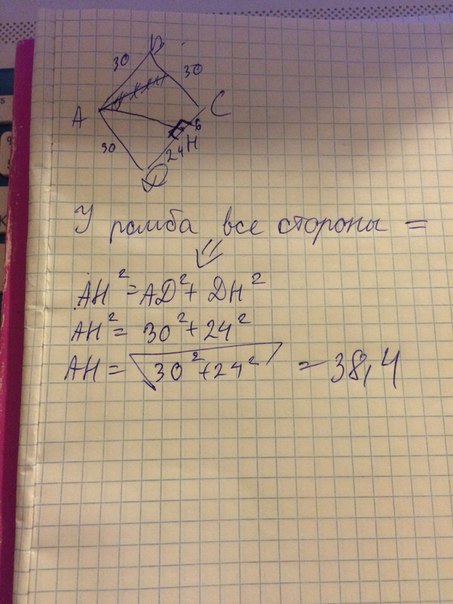 B
30
30
A
C
6
30
24
H
D
У ромба все стороны =
AH² = AD² + DH²
AH² = 30² + 24²
AH = √30² + 24² = 38,4